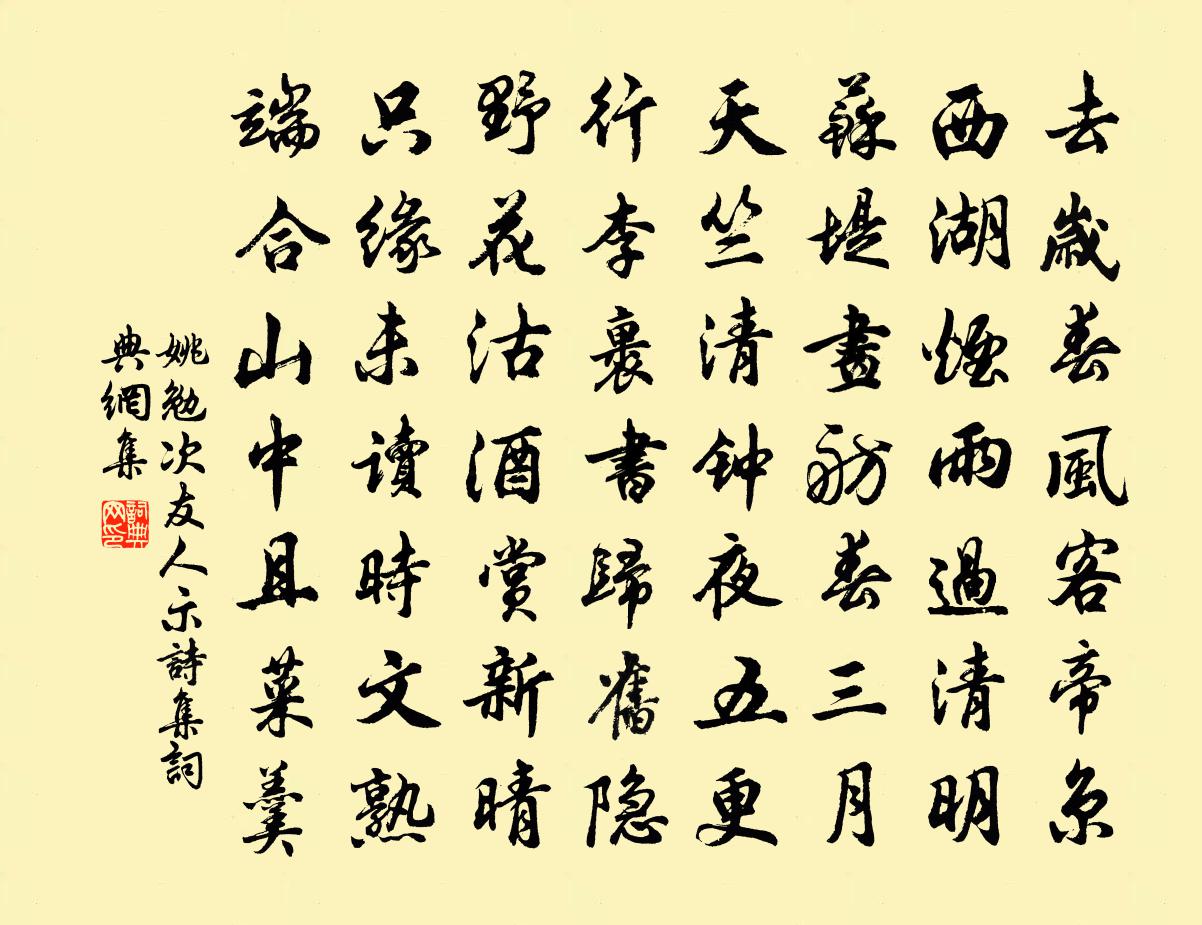 去歲春風客帝京
西湖煙雨過清明
蘇堤畫舫春三月
天竺清钟夜五更
行李裹書歸舊隐
野花沽酒賞新晴
只缘未讀時文熟
端合山中且菜羹
姚勉次友人示詩集詞
典網集
詞典
网印